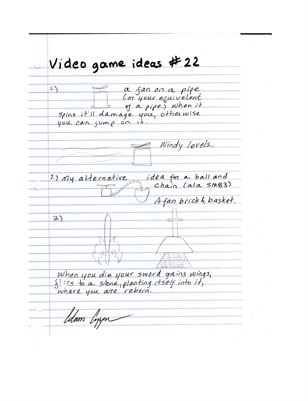 Video game ideas #22
1.) a fan on a pipe
(or your equivalent
of a pipe.) when it
spins it'll damage you, otherwise
you can jump on it.
Windy levels..
2.) my alternative idea for a ball and
chain (ala SMB3)
A fan brick & basket.
2)
When you die your sword gains wings,
flies to a stone, planting itself into it,
where you are reborn.
Adam